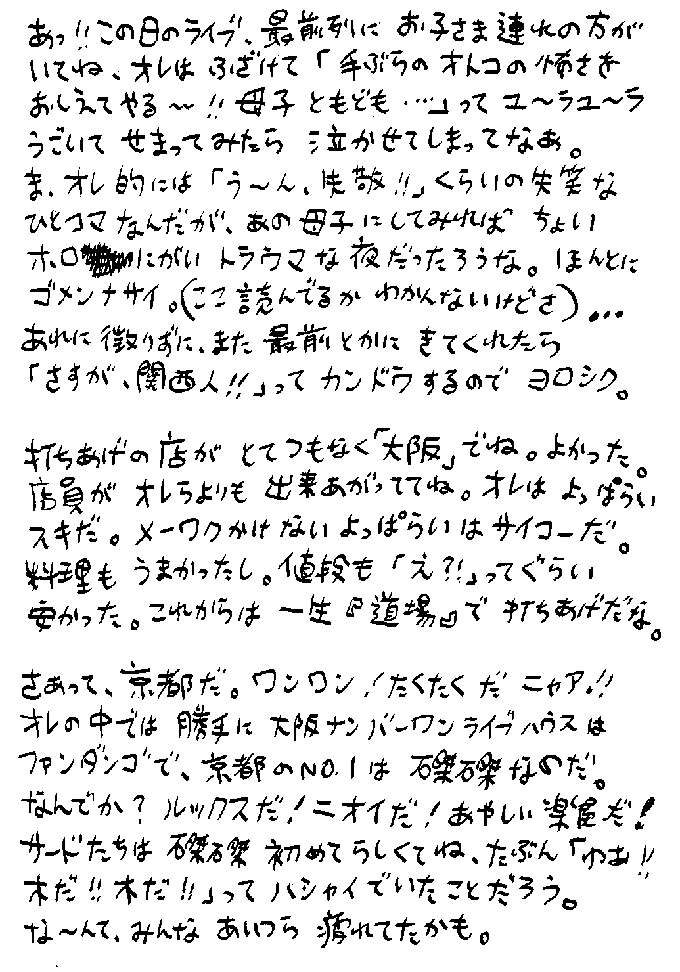 あっ!!この日のライブ、最前列に お子さま連れの方が
いてね、オレは ふざけて「手ぶらの オトコの怖さを
おしえてやる〜!! 母子 ともども…」って ユ〜ラユ〜ラ
うごいて せまってみたら 泣かせてしまってなあ。
ま、オレ的には「う〜ん、失敬!!」くらいの失笑な
ひとコマ なんだが、あの 母子 にしてみれば ちょい
ホロにがい トラウマな夜だったろうな。ほんとに
ゴメンナサイ。(ここ読んでるか わかんないけどさ)…
あれに 徴りずに、また 最前とかに きてくれたら
「さすが、関西人!!」って カンドウするので ヨロシク。
打ちあげの店が とてつもなく「大阪」でね。よかった。
店員が オレらよりも 出来あがっててね。オレは よっぱらい
スキだ。メーワクかけない よっぱらいはサイコーだ。
料理も うまかったし。値段も「え?!」ってぐらい
安かった。これからは 一生『道場』で 打ちあげだな。
さあって、京都だ。ワンワン!たくたくだ ニャア!!
オレの中では 勝手に 大阪ナンバーワンライブハウスは
ファンダンゴで、京都のNO.1は 磔磔なのだ。
なんでか? ルックスだ!ニオイだ!あやしい 楽屋だ!
サードたちは 磔磔 初めてらしくてね、たぶん「わあ!!
木だ!!木だ!!」って ハシャイでいたことだろう。
な〜んて、みんな あいつら 疲れてたかも。